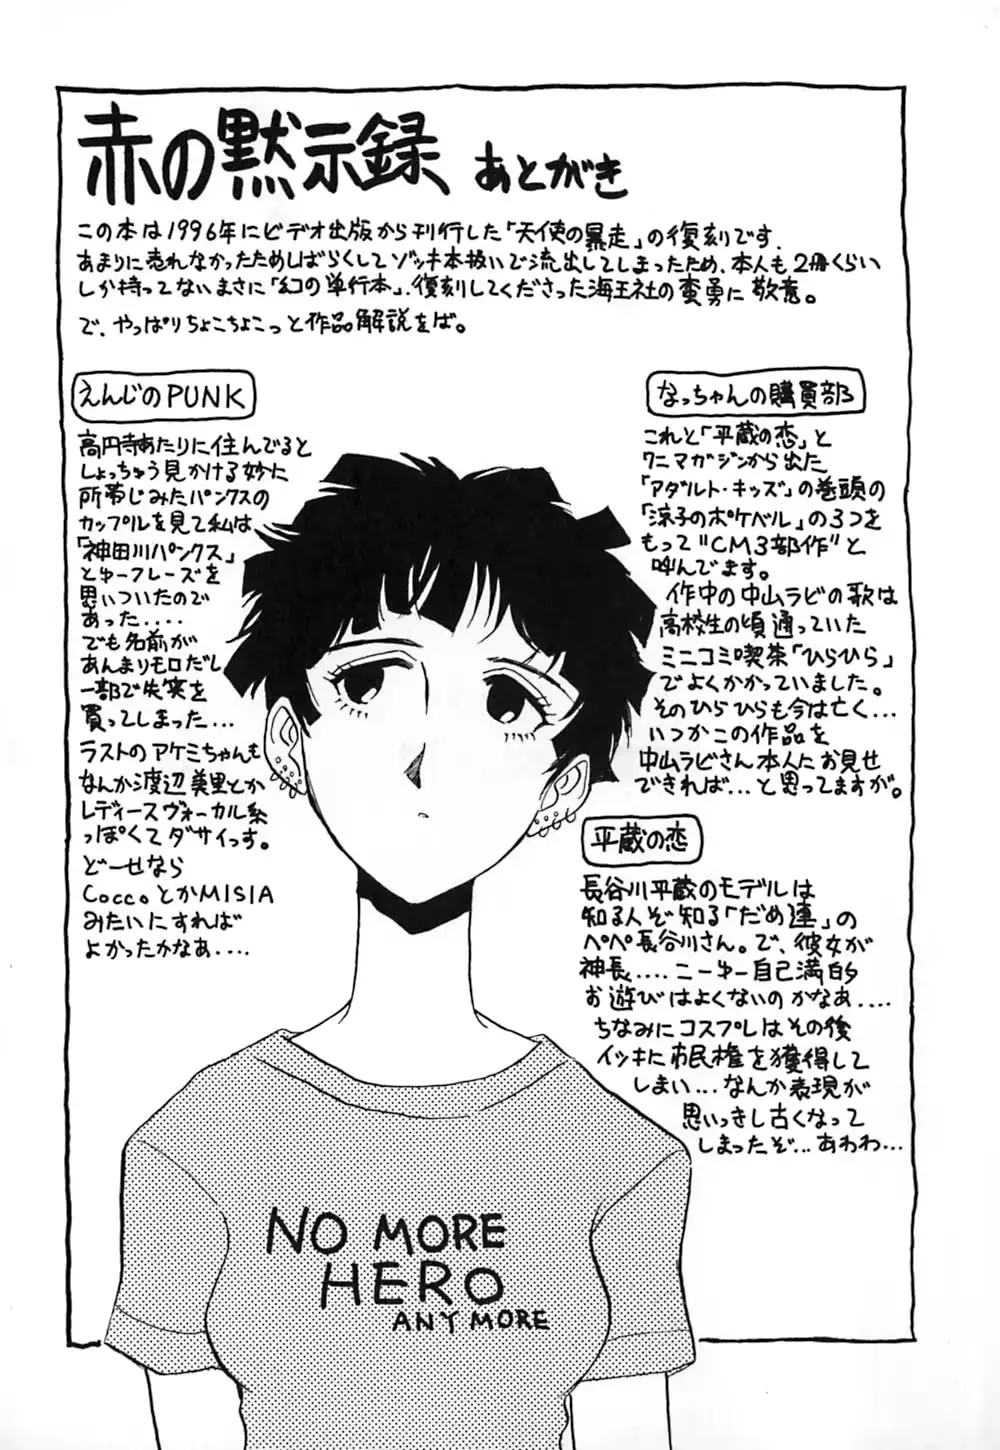 赤の黙示録 あとがき
この本は1996年にビデオ出版から刊行した「天使の暴走」の復刻です.
あまりに売れなかったためしばらくしてゾッキ本扱いで流出してしまったため、本人も2冊くらい
しか持ってないまさに「幻の単行本」. 復刻してくださった海王社の蛮勇に敬意。
で、やっぱりちょこちょこっと作品解説をば。
えんじのPUNK
高円寺あたりに住んでると
しょっちゅう見かける妙に
所帯じみたパンクスの
カップルを見て私は
「神田川パンクス」
とゆーフレーズを
思いついたので
あった....
でも名前が
あんまりモロだし
一部で失笑を
買ってしまった...
ラストのアケミちゃんも
なんか渡辺美里とか
レディースヴォーカル系
っぽくてダサイっす。
どーせなら
CoccoとかMISIA
みたいにすれば
よかったかなあ....
なっちゃんの購買部
これと「平蔵の恋」と
ワニマガジンから出た
「アダルト・キッズ」の巻頭の
「涼子のポケベル」の3つを
もって"CM3部作"と
呼んでます。
作中の中山ラビの歌は
高校生の頃通っていた
ミニコミ喫茶「ひらひら」
でよくかかっていました。
そのひらひらも今は亡く...
いつかこの作品を
中山ラビさん本人にお見せ
できれば...と思ってますが。
平蔵の恋
長谷川平蔵のモデルは
知る人ぞ知る「だめ連」の
ペペ長谷川さん。で、彼女が
神長....こーゆー自己満的
お遊びはよくないのかなあ....
ちなみにコスプレはその後
イッキに市民権を獲得して
しまい...なんか表現が
思いっきし古くなって
しまったぞ...あわわ...
NO MORE
HERO
ANY MORE